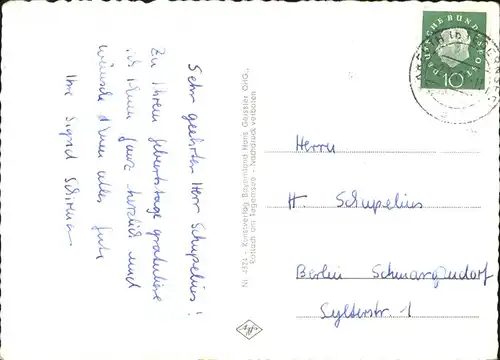 Sehr geehrter Herr Schupelius!
Zu Ihrem Geburtstage gratuliere
ich Ihnen ganz herzlich und
wünsche Ihnen alles Gute
Ihre Sigrid
IN 4372 - Kunstverlag Bayernland Hans Gessler OHG.,
Rottach am Tegernsee - Nachdruck verboten
DEUTSCHE BUNDESPOST
10
Herrn
H. Schupelius
Berlin Schmargendorf
Sylterstr. 1